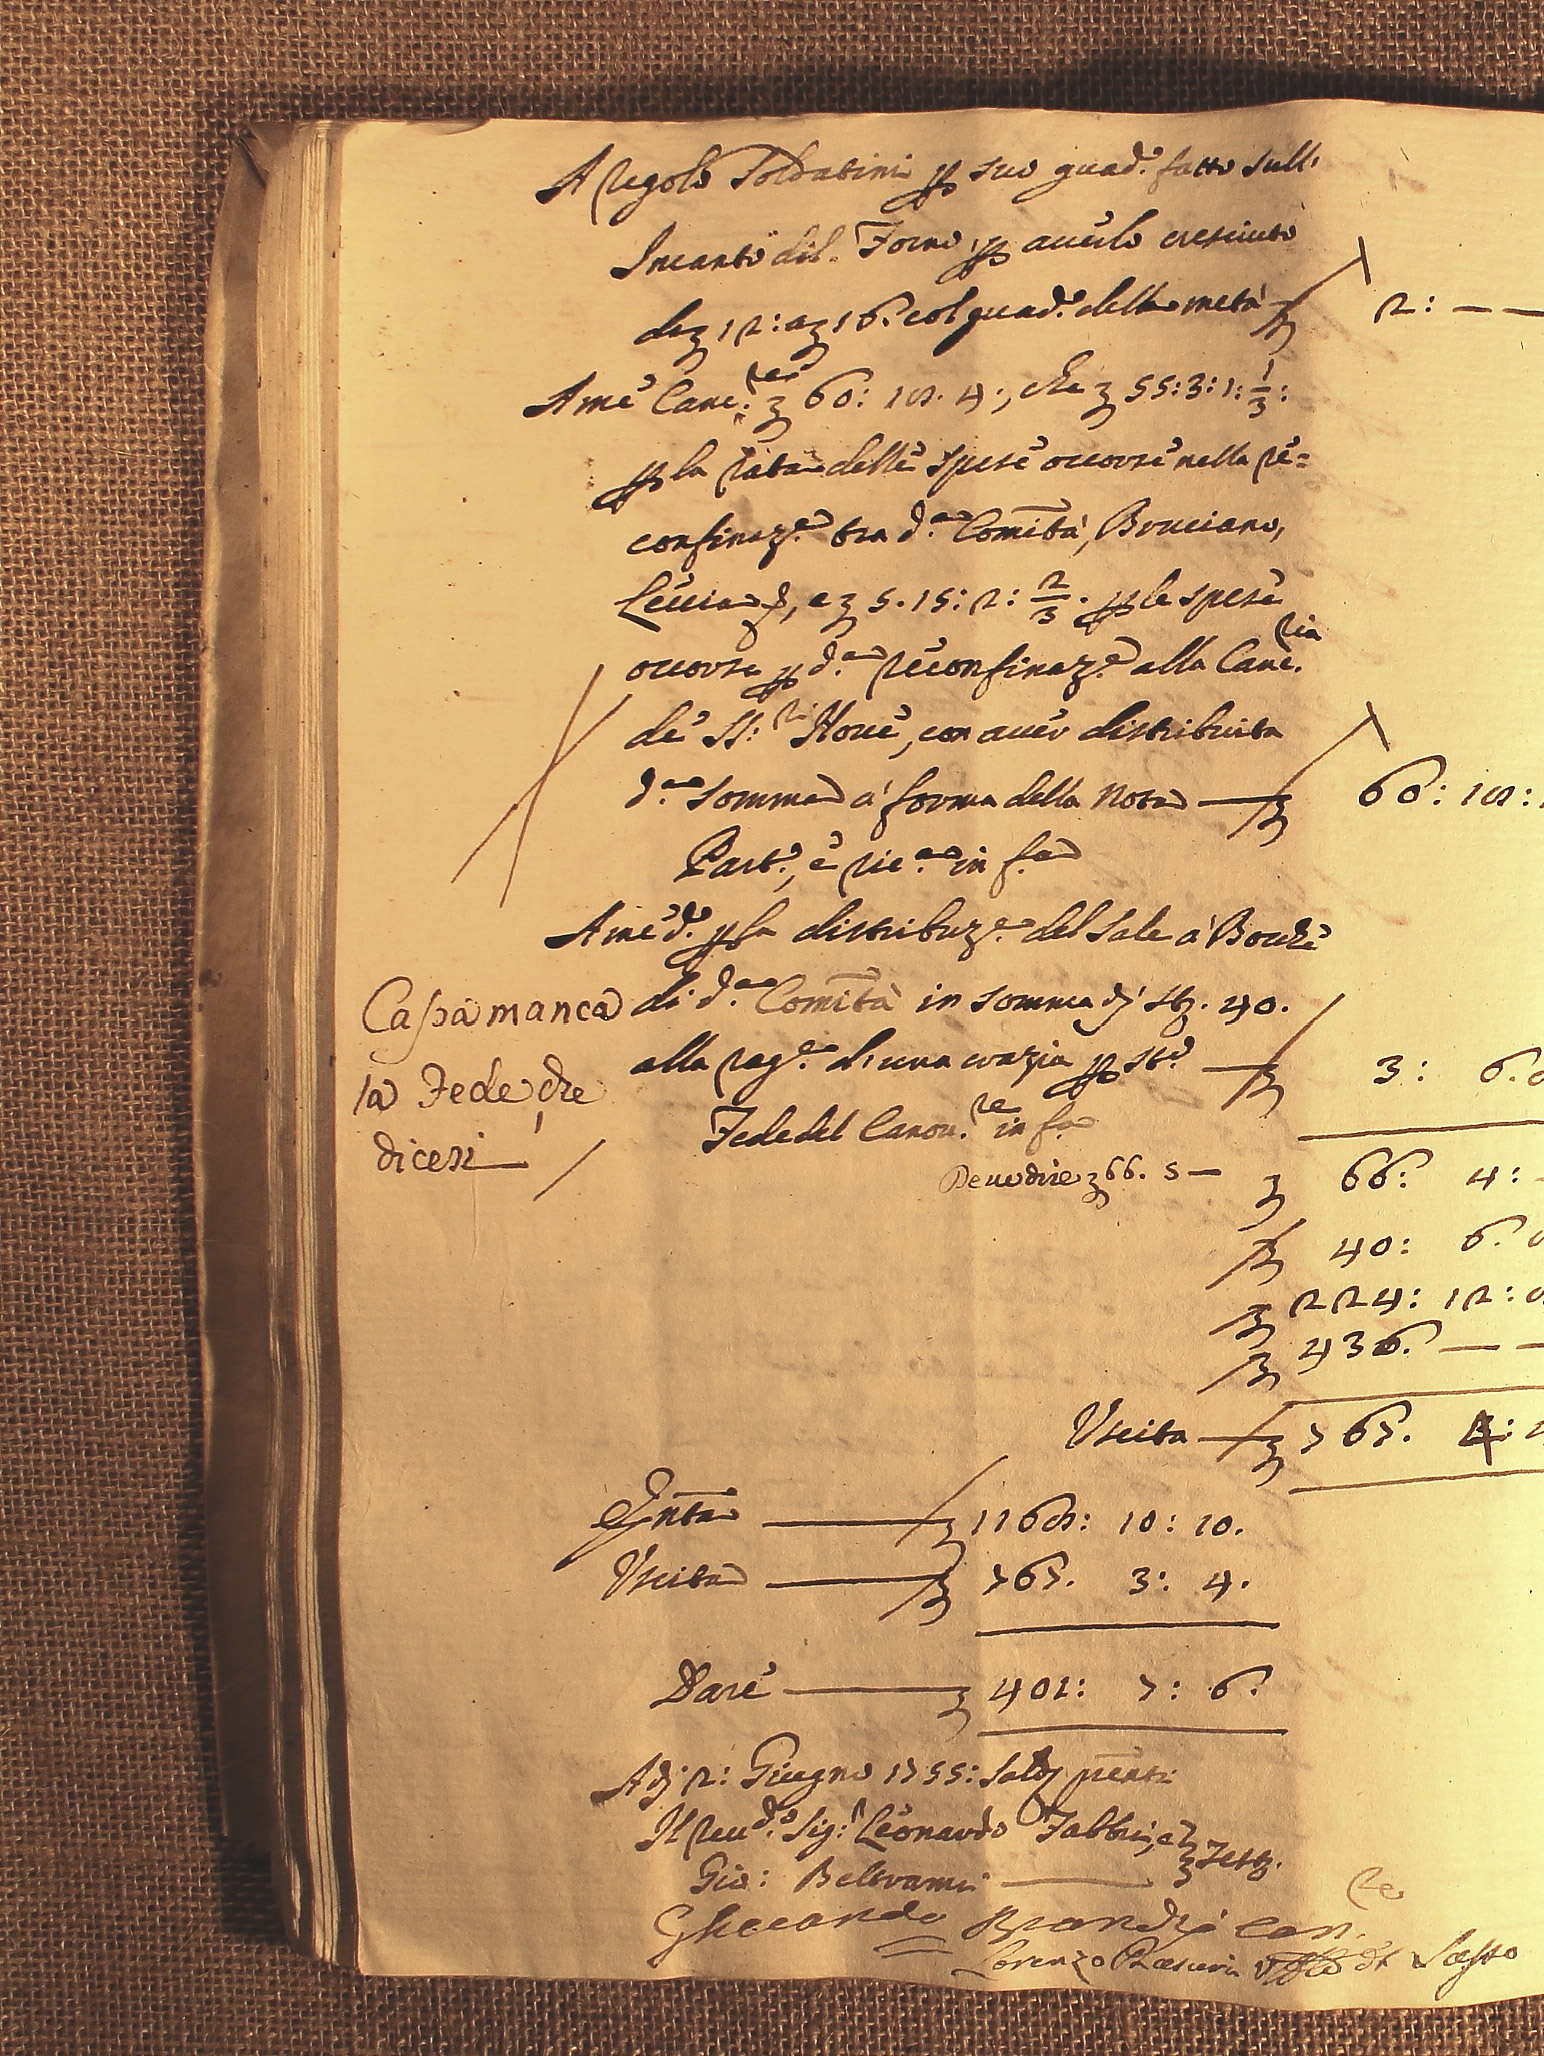 A Regolo Soldatini p suo guad.o fatto sull'
Incanto del Forno p auerlo cresciuto
da £ 12: a £ 16. col guad.o della metà £ 2: — —
A me Canc:re £ 60: 18. 4; che £ 55:3:1:1/3:
p la rata delle spese occorse nella re=
confinaz.e tra d.a Comità, Bruciano,
Leccia &, e £ 5.15:2:2/3. p le spese
occorse p d.a reconfinaz.e alla Canc.ria
de SS:ri Noue, con auer distribuita
d.a somma a forma della Nota £ 60: 18:
Part.e, e ric.a in f.a
A me d.o p la distribuz.e del Sale a Bocche
di d.a Comità in somma di st. 40.
alla rag.e di una crazia p st.o £ 3: 6.
Fede del Canou.re in f.a
Casa manca
la Fede, che
dicesi
Deue dire £ 66. 5 — £ 66: 4:
£ 40: 6.
£ 224: 12:
£ 436. — —
Vscita — £ 767. 4:
Entra — £ 1168: 10: 10.
Vscita — £ 767. 3: 4.
Dare — £ 401: 7: 6.
A di 2: Giugno 1755: Saldo pnti
Il Reu.do Sig.r Leonardo Fabbri, e
Gio: Beltrami — Test.
Gherardo Brandi Can.re
Lorenzo